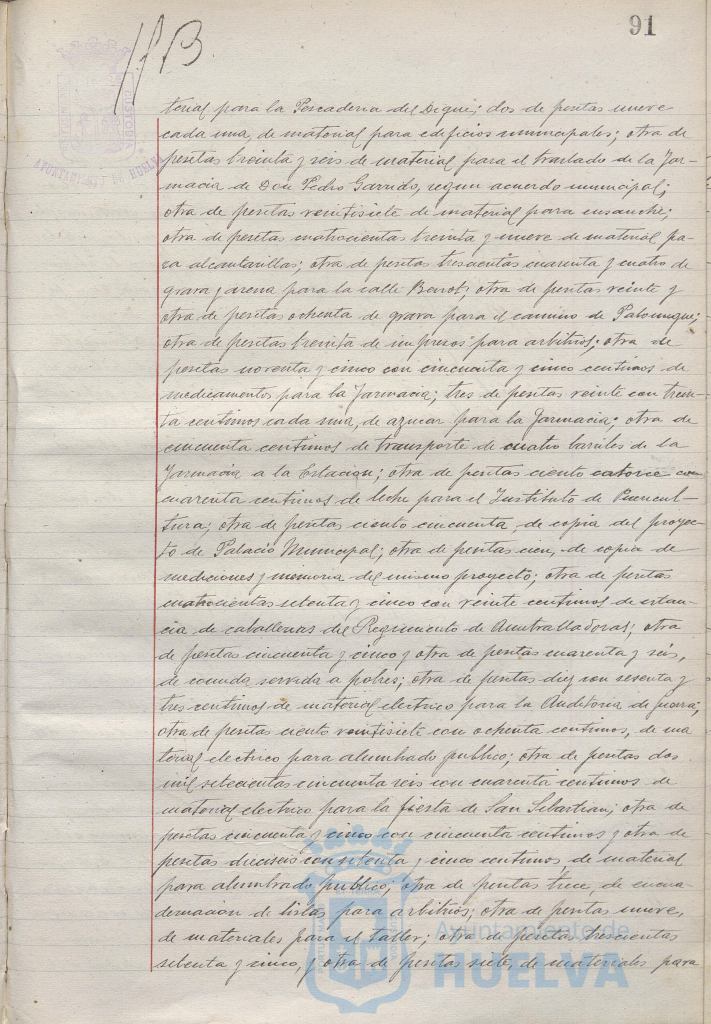 91
terial para la Pescaderia del Dique; dos de pesetas nueve
cada una, de material para edificios municipales; otra de
pesetas treinta y seis de material para el traslado de la Far-
macia de Don Pedro Garrido, segun acuerdo municipal;
otra de pesetas veintisiete de material para ensanche;
otra de pesetas cuatrocientas treinta y nueve de material pa-
ra alcantarillas; otra de pesetas trescientas cuarenta y cuatro de
grava y arena para la calle Berrot; otra de pesetas veinte y
otra de pesetas ochenta de grava para el camino de Palomeque;
otra de pesetas treinta de impresos para arbitrios; otra de
pesetas noventa y cinco con cincuenta y cinco centimos de
medicamentos para la Farmacia; tres de pesetas veinte con trein-
ta centimos cada una, de azucar para la Farmacia; otra de
cincuenta centimos de transporte de cuatro barriles de la
Farmacia a la Estacion; otra de pesetas ciento catorce con
cuarenta centimos de leche para el Instituto de Puericul-
tura; otra de pesetas ciento cincuenta, de copia del proyec-
to de Palacio Municipal; otra de pesetas cien, de copia de
mediciones y memoria del mismo proyecto; otra de pesetas
cuatrocientas setenta y cinco con veinte centimos de estan-
cia de caballerias del Regimiento de Ametralladoras; otra
de pesetas cincuenta y cinco y otra de pesetas cuarenta y seis,
de comida servida a pobres; otra de pesetas diez con seventa y
tres centimos de material electrico para la Auditoria de guerra;
otra de pesetas ciento veintisiete con ochenta centimos, de ma
terial electrico para alumbrado publico; otra de pesetas dos
mil setecientas cincuenta seis con cuarenta centimos de
material electrico para la fiesta de San Sebastian; otra de
pesetas cincuenta y cinco con cincuenta centimos y otra de
pesetas dieciseis con setenta y cinco centimos de material
para alumbrado publico; otra de pesetas trece, de encua-
dernacion de listas para arbitrios; otra de pesetas nueve,
de materiales para el taller; otra de pesetas trescientas
setenta y cinco, y otra de pesetas siete, de materiales para
AYUNTAMIENTO DE HUELVA
Ayuntamiento de
HUELVA